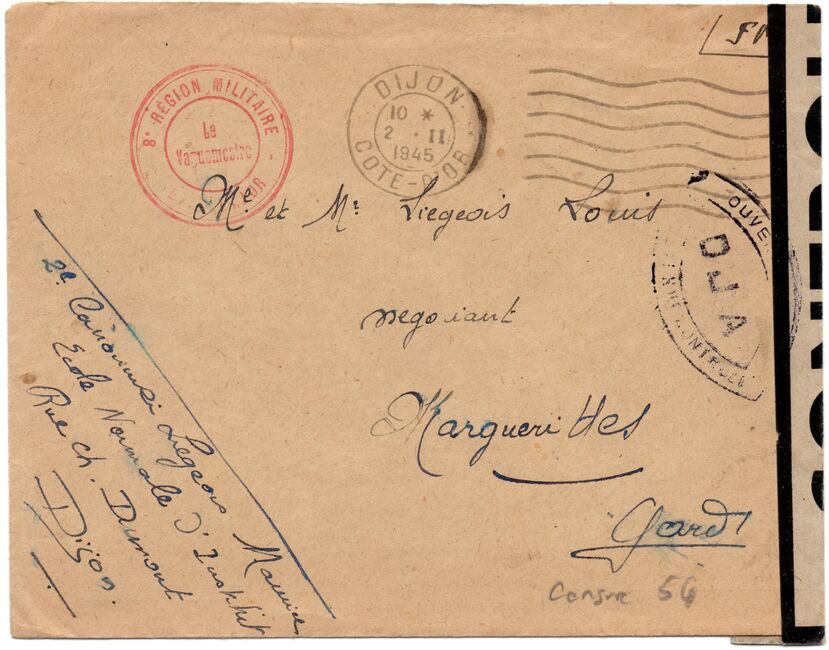 FM
8e RÉGION MILITAIRE
Le
Vaguemestre
OR
DIJON
10 *
2 . II
1945
COTE-D'OR
OUVE
DJA
CONTROLE
Me et Mr Liegeois Louis
negociant
Marguerittes
Gard
2e Canonnier Liegeois Maurice
Ecole Normale d'Institut
Rue Ch. Dumont
Dijon.
Censure 56